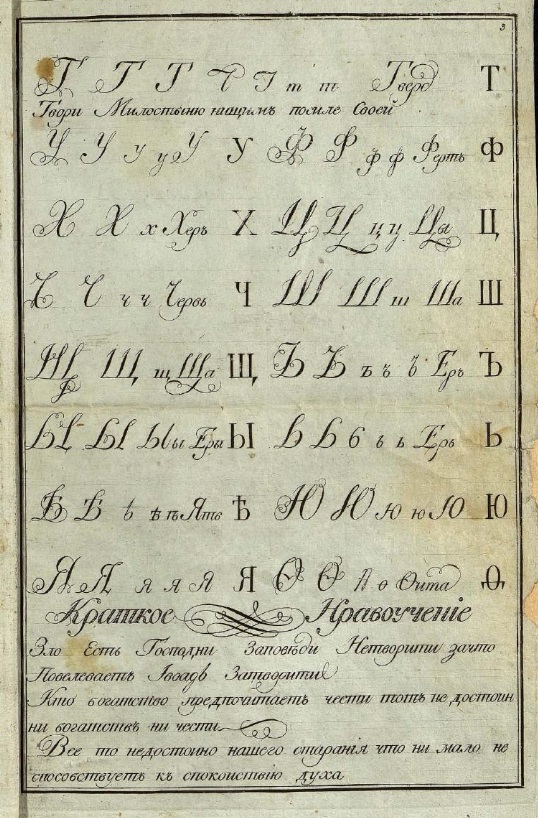 3
Т Т Т Т Т т т Твердо Т
Твори Милостыню нищимъ посиле Своей
У У у у У У Ф Ф ф ф Фертъ Ф
Х Х х Херъ Х Ц Ц ц ц Цы Ц
Ч Ч ч ч Червь Ч Ш Ш ш Ша Ш
Щ Щ щ Ща Щ Ъ Ъ ъ ъ ъ Еръ Ъ
Ы Ы Ы ы Еры Ы Ь Ь ь ь ь Ерь Ь
Ѣ Ѣ ѣ ѣ ѣ Ять Ѣ Ю Ю ю ю Ю Ю
Я Я я я Я Я Ѳ Ѳ ѳ ѳ Ѳита Ѳ
Краткое Нравоученіе
Зло Есть Господни Заповѣди Нетворити зачто
Повелеваетъ Затворити
Кто богатство предпочитаетъ чести тотъ не достоин
ни богатствъ ни чести
Все то недостоино нашего старанія что ни мало не
способствуетъ къ спокоиствію духа